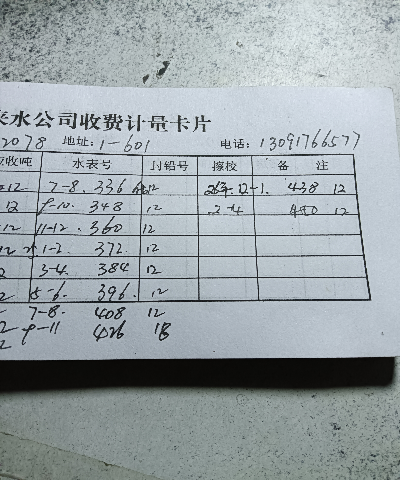 来水公司收费计量卡片
2078 地址:1-601 电话:13091766577
收吨 水表号 封铅号 擦校 备 注
12 7-8. 336 12 12-1. 438 12
12 9-10. 348 12 2-4 450 12
12 11-12. 360 12
12 1-2. 372. 12
2 3-4. 384 12
2 5-6. 396. 12
7-8. 408 12
2 9-11 426 18
2